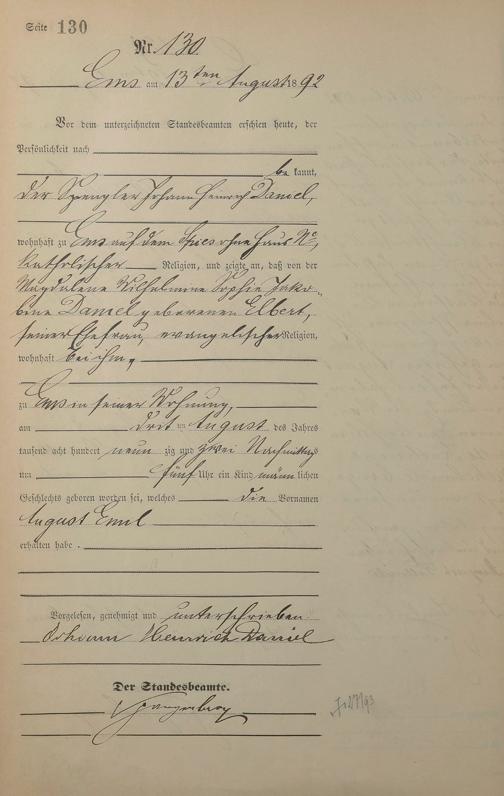 Seite 130
Nr. 130.
Ems am 13ten August 1892
Vor dem unterzeichneten Standesbeamten erschien heute, der
Persönlichkeit nach
be kannt,
der Spengler Johann Heinrich Daniel,
wohnhaft zu Ems auf dem Spies ohne Haus No,
katholischer Religion, und zeigte an, daß von der
Magdalene Wilhelmine Sophie Jako-
bine Daniel geborenen Elbert,
seiner Ehefrau, evangelischer Religion,
wohnhaft bei ihm,
zu Ems in seiner Wohnung,
am drei ten August des Jahres
tausend acht hundert neun zig und zwei Nachmittags
um fünf Uhr ein Kind männ lichen
Geschlechts geboren worden sei, welches die Vornamen
August Emil
erhalten habe.
Vorgelesen, genehmigt und unterschrieben
Johann Heinrich Daniel
Der Standesbeamte.
Spangenberg